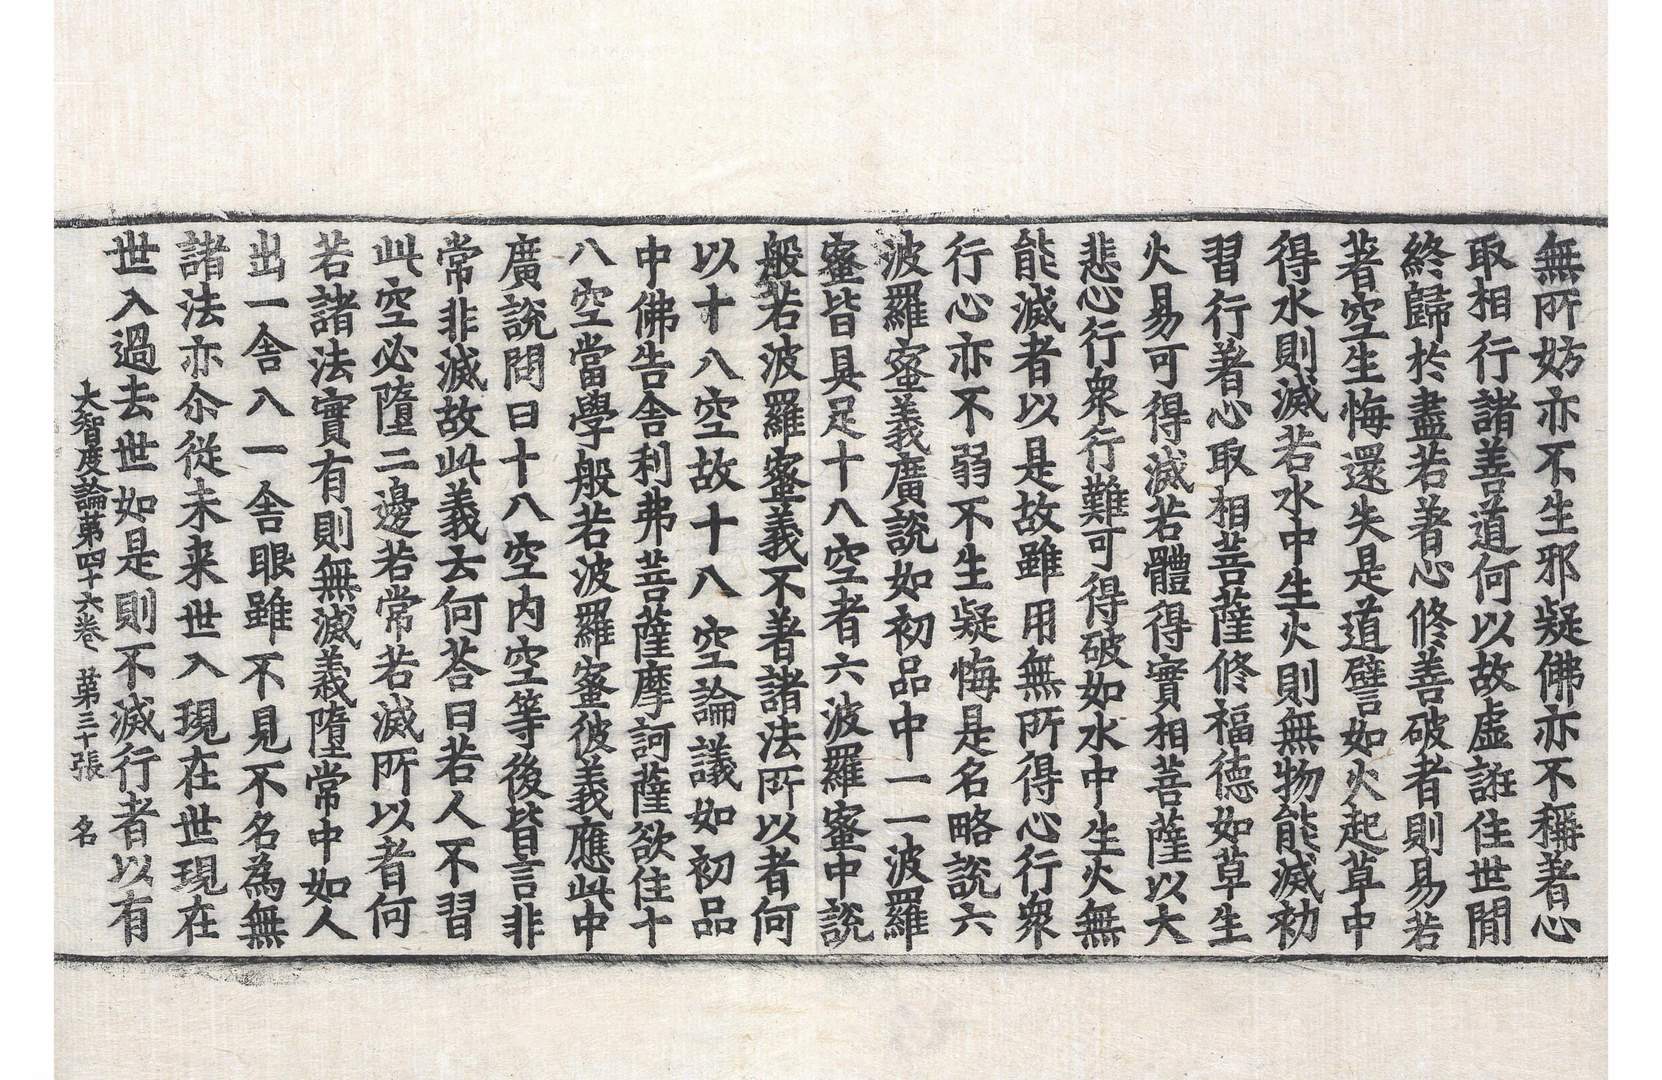 無所妨亦不生邪疑佛亦不稱著心
取相行諸善道何以故虛誑住世間
終歸於盡若著心修善破者則易若
著空生悔還失是道譬如火起草中
得水則滅若水中生火則無物能滅初
習行著心取相菩薩修福德如草生
火易可得滅若體得實相菩薩以大
悲心行衆行難可得破如水中生火無
能滅者以是故雖用無所得心行衆
行心亦不弱不生疑悔是名略說六
波羅蜜義廣說如初品中一一波羅
蜜皆具足十八空者六波羅蜜中說
般若波羅蜜義不著諸法所以者何
以十八空故十八空論議如初品
中佛告舍利弗菩薩摩訶薩欲住十
八空當學般若波羅蜜彼義應此中
廣說問曰十八空內空等後皆言非
常非滅故此義云何荅曰若人不習
此空必墮二邊若常若滅所以者何
若諸法實有則無滅義墮常中如人
出一舍入一舍眼雖不見不名為無
諸法亦尒從未来世入現在世現在
世入過去世如是則不滅行者以有
大智度論第四十六卷 第三十張 名